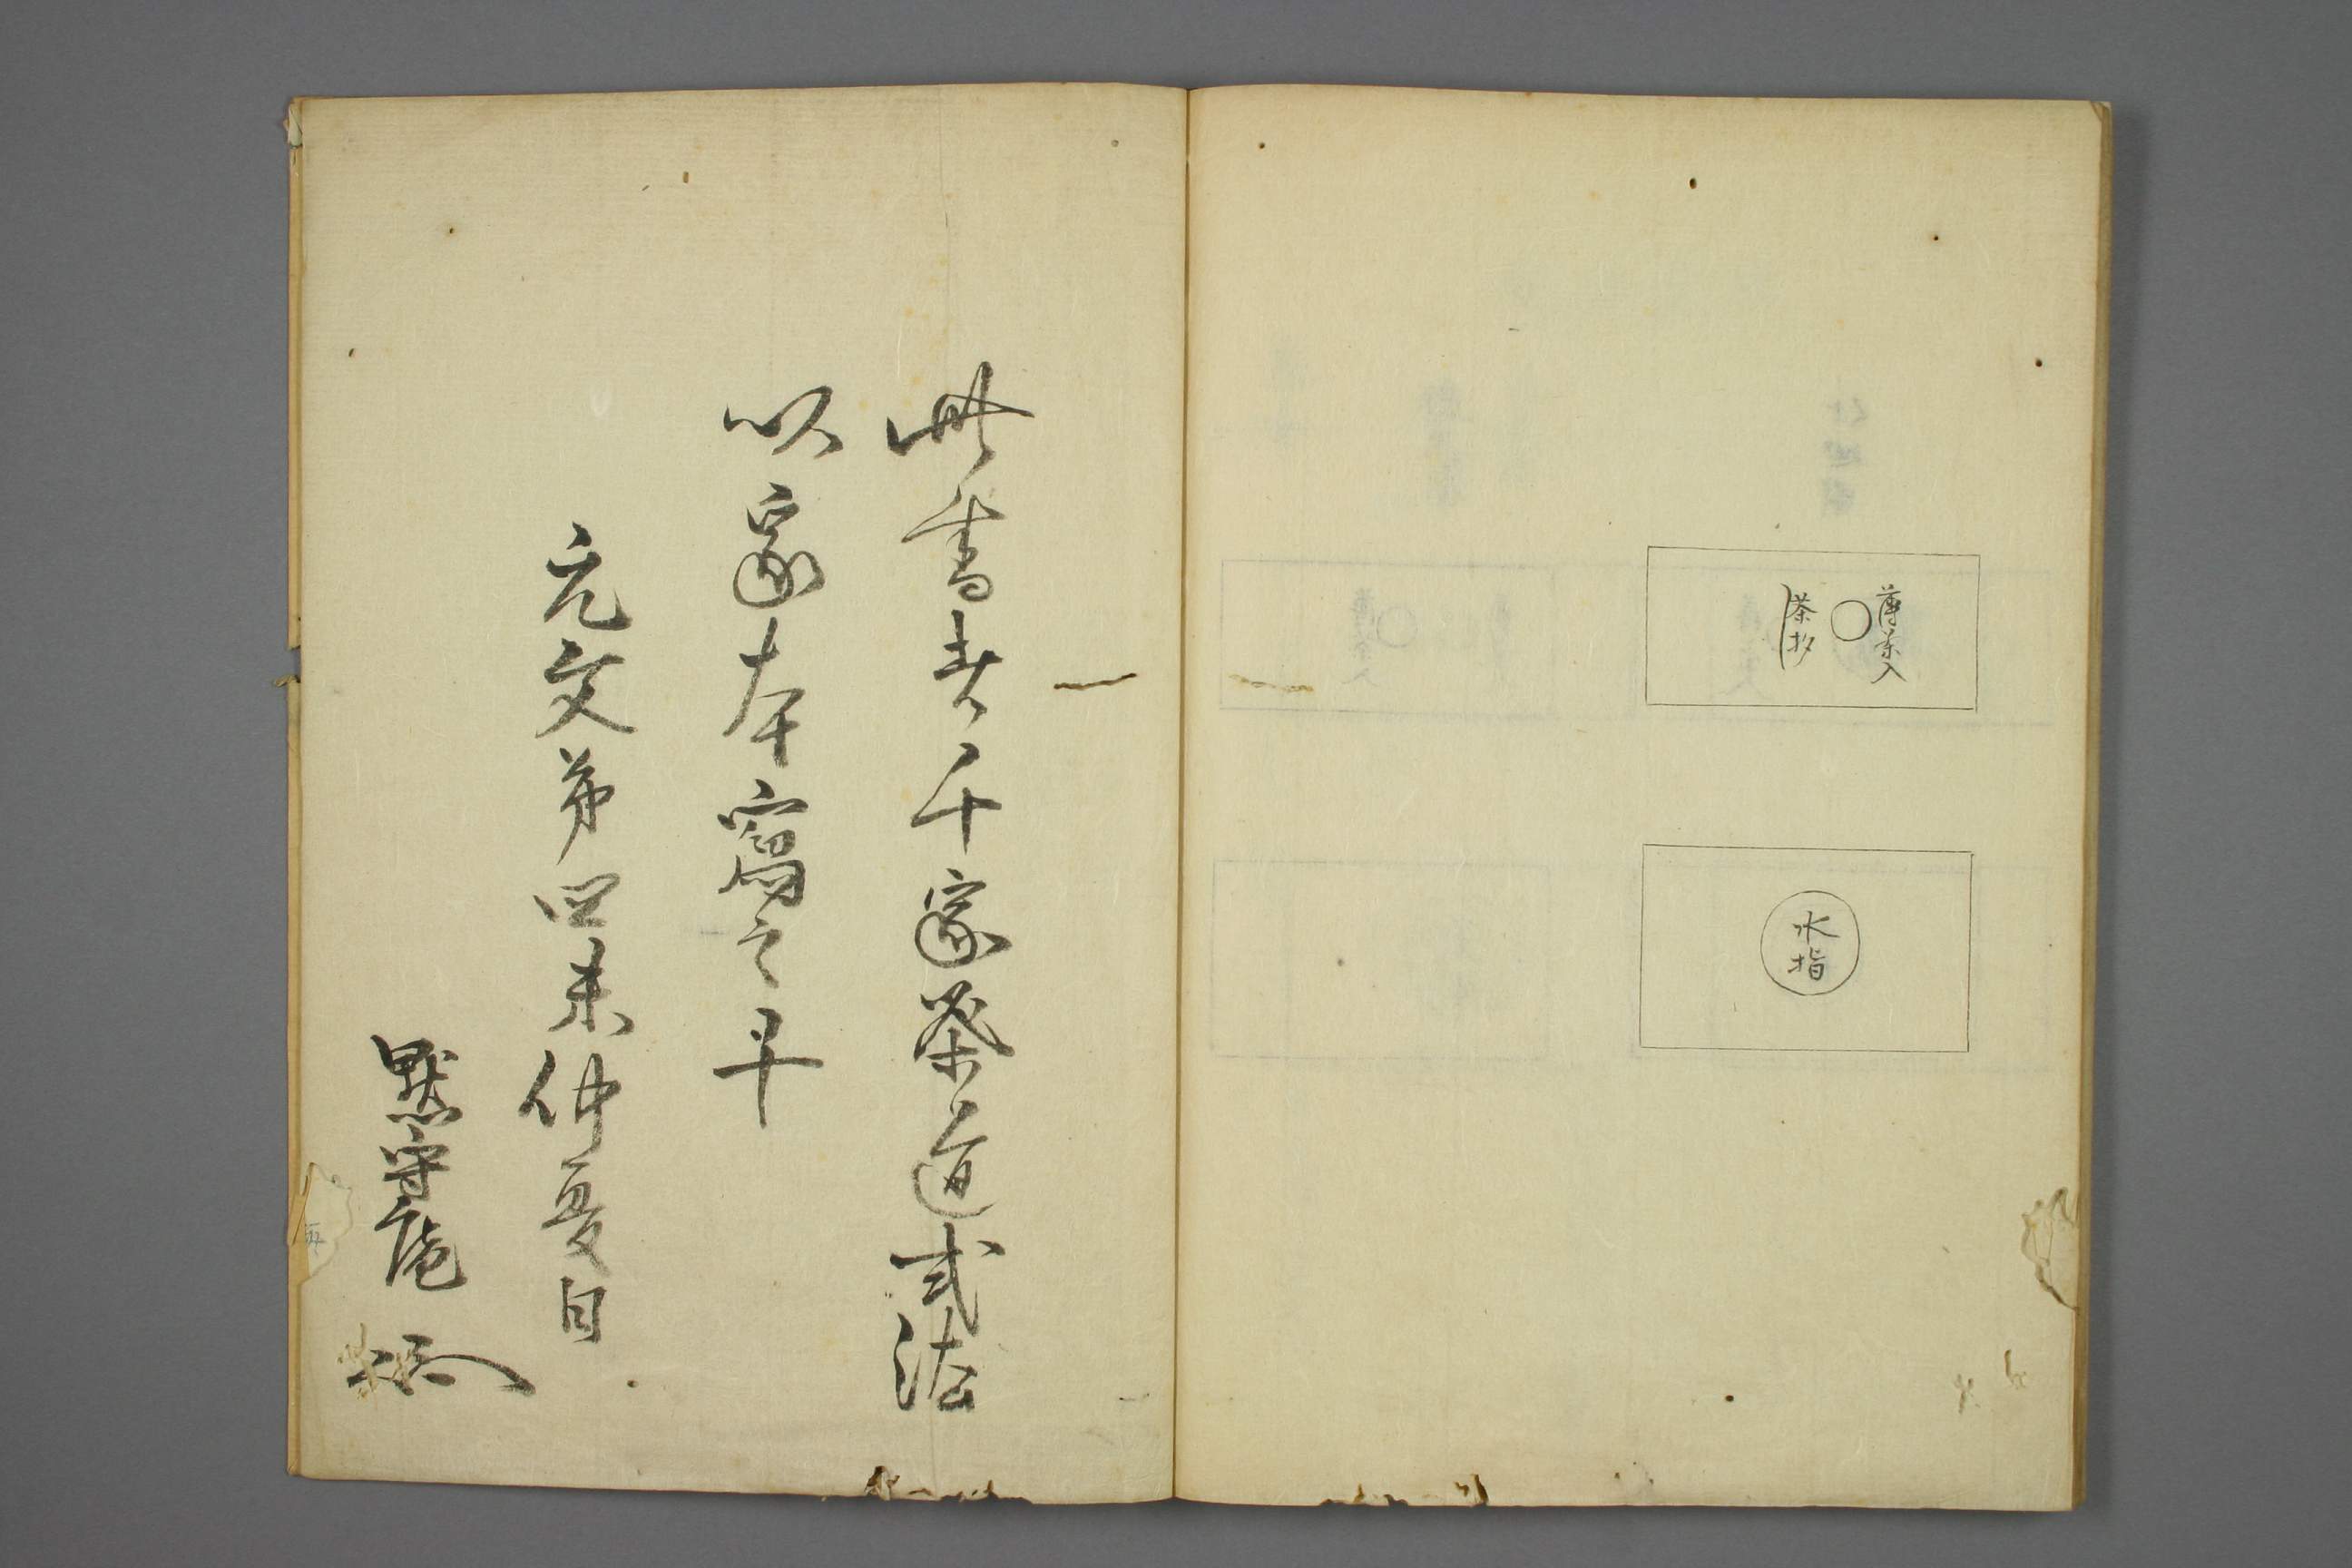 薄茶入
茶杓
水指
此書者千家茶道式法
以家本寫之早
元文第四未仲夏日
默守庵